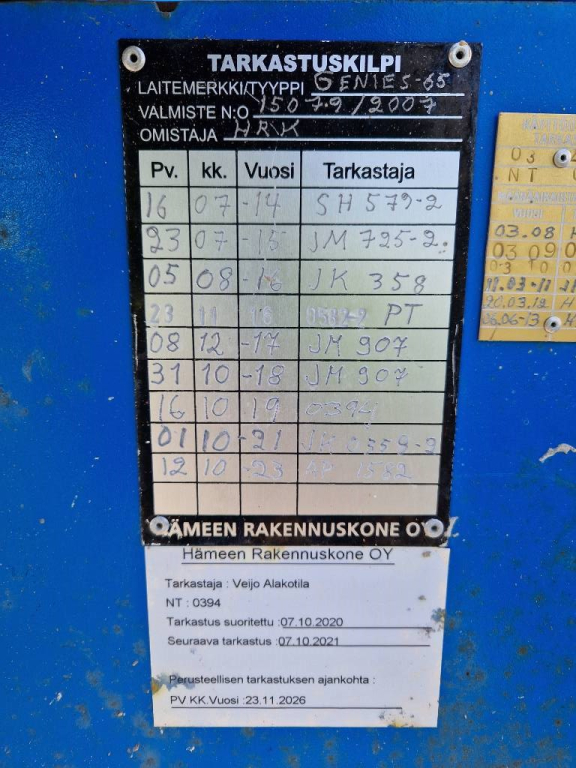 TARKASTUSKILPI
LAITEMERKKI/TYYPPI GENIE S-65
VALMISTE N:O 15079/2007
OMISTAJA HRK
Pv. kk. Vuosi Tarkastaja
16 07 -14 SH 579-2
23 07 -15 JM 725-2
05 08 -16 JK 358
23 11 16 PT
08 12 -17 JM 907
31 10 -18 JM 907
16 10 19 0394
01 10 -21 0359-2
12 10 -23
HÄMEEN RAKENNUSKONE OY
Hämeen Rakennuskone OY
Tarkastaja : Veijo Alakotila
NT : 0394
Tarkastus suoritettu :07.10.2020
Seuraava tarkastus :07.10.2021
Perusteellisen tarkastuksen ajankohta :
PV KK.Vuosi :23.11.2026
03
NT
03.08
03 09
0.3 10
18.03-11
20.03.12 H
26.06-13